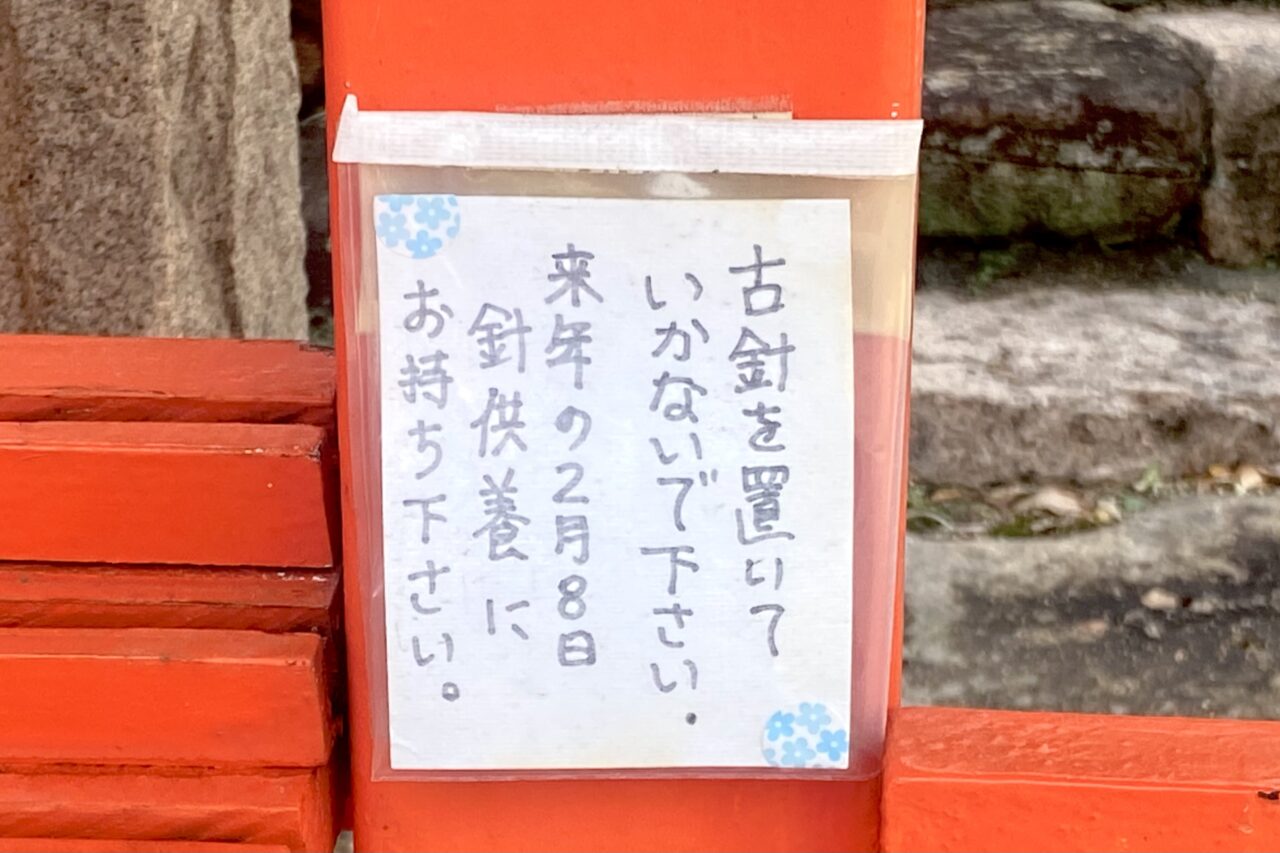 古針を置いて
いかないで下さい.
来年の2月8日
針供養に
お持ち下さい。